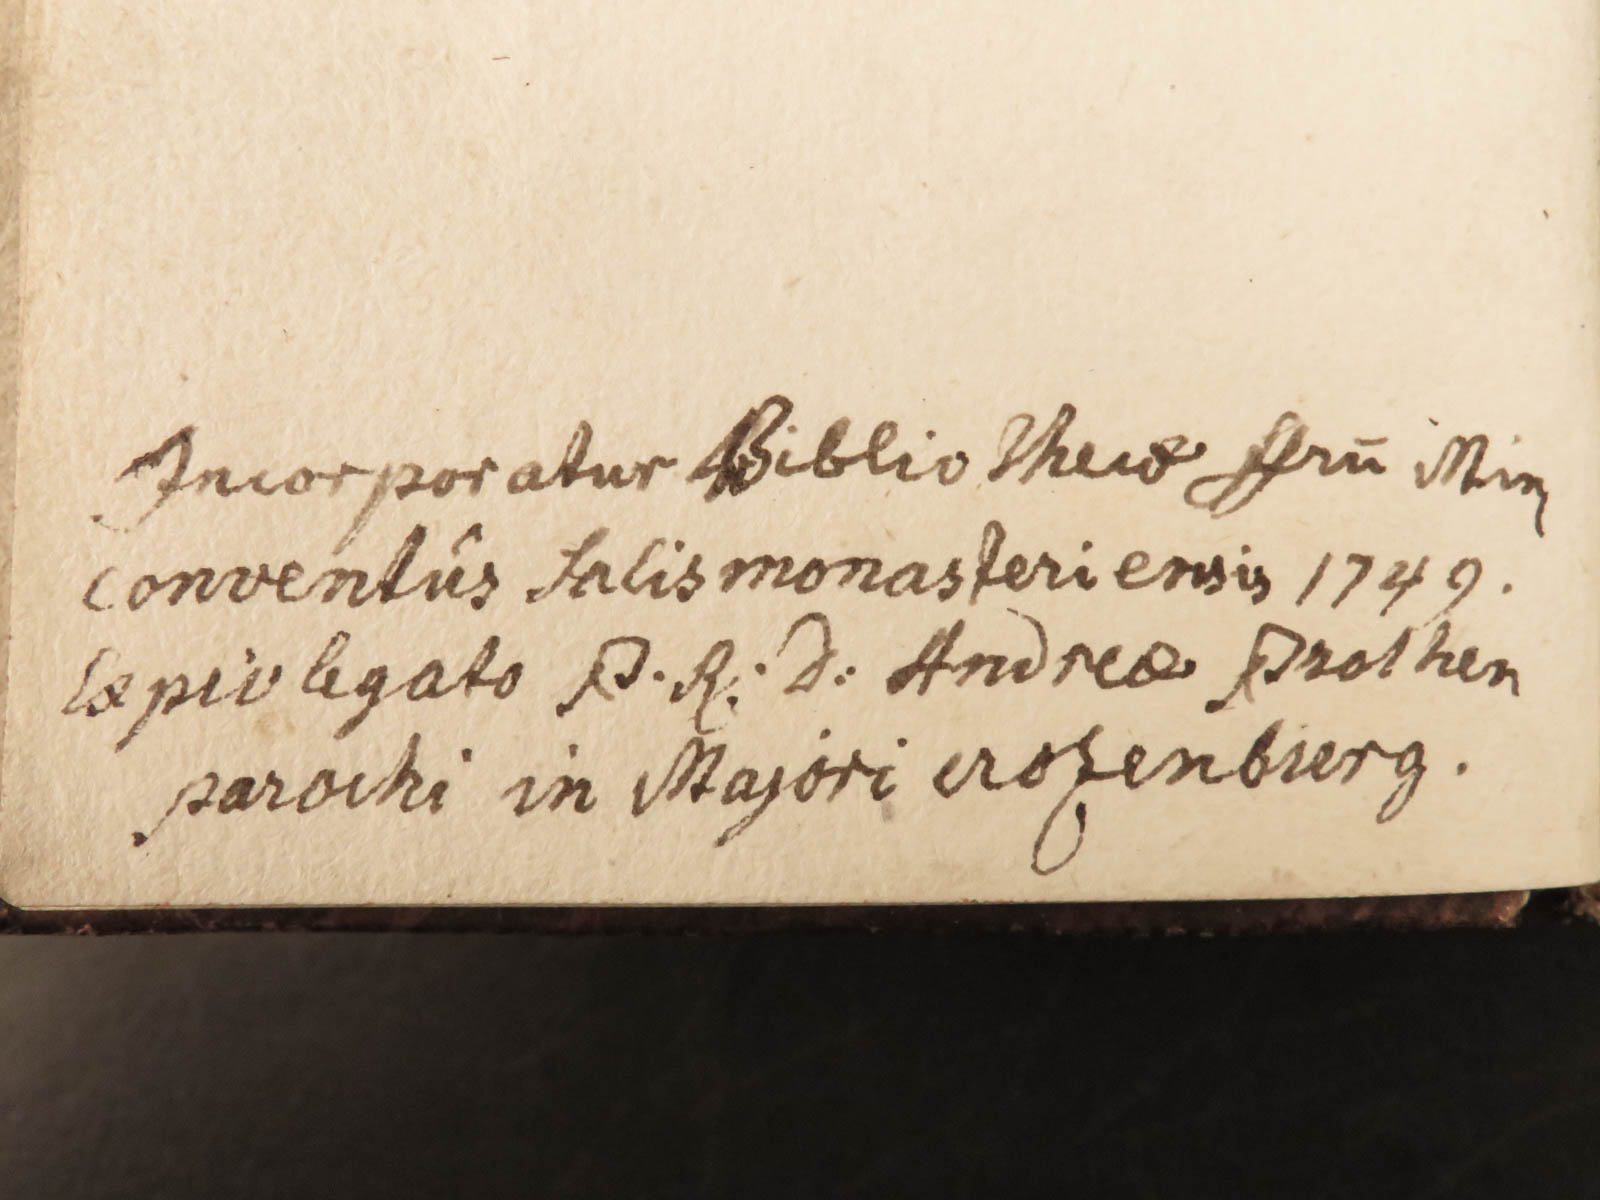 Incorporatur Bibliothecæ ffrū Min
conventûs Salismonasteriensis 1749.
Ex pio legato P. R. D. Andreæ Prothen
parochi in Majori